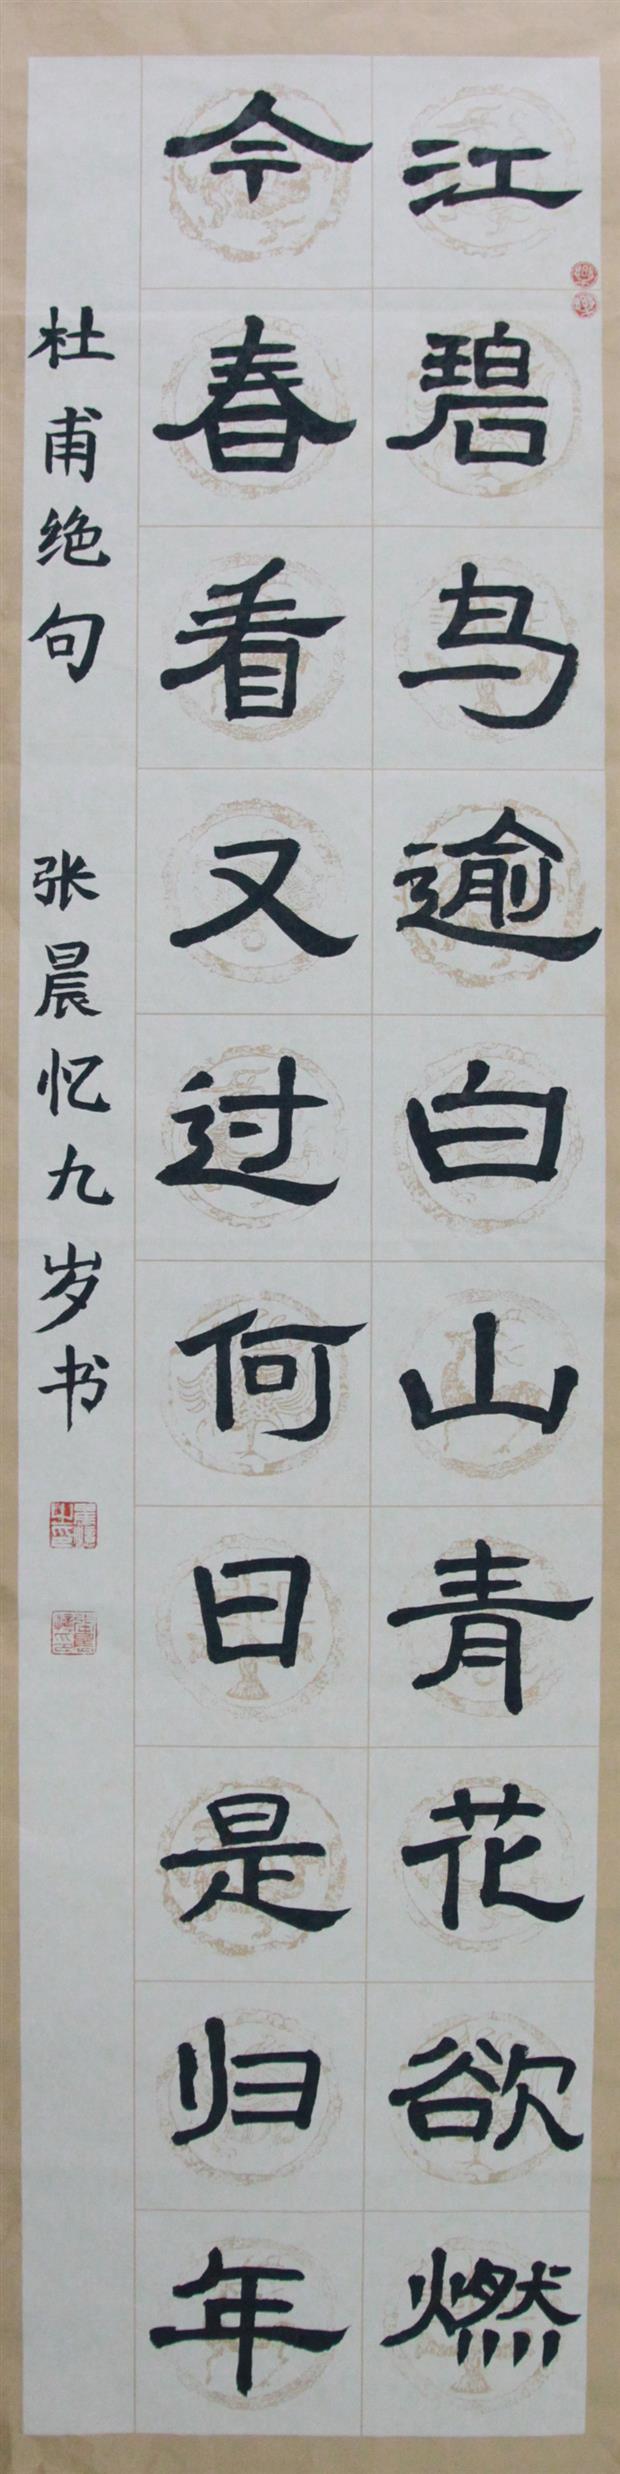 江碧鸟逾白山青花欲燃
今春看又过何日是归年
杜甫绝句 张晨忆九岁书